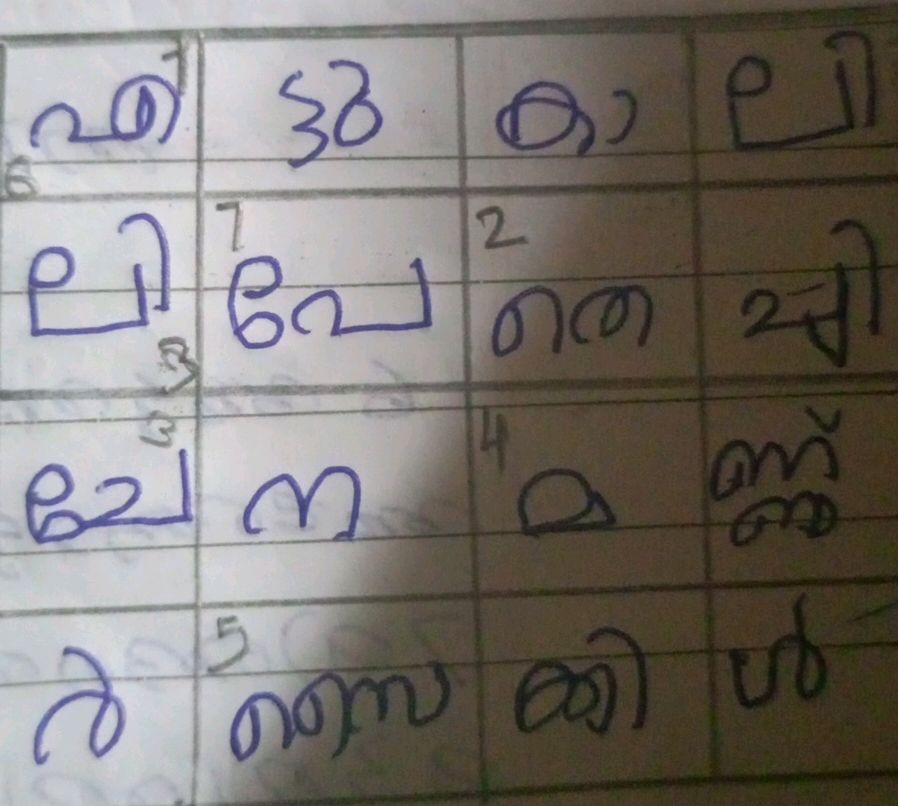 1 എ ട്ടു കാ ലി
6 ലി 7 പേ 2 തെ ച്ചി
3 ചേ ന 4 മ ണ്ണ്
ർ 5 സൈ ക്കി ൾ